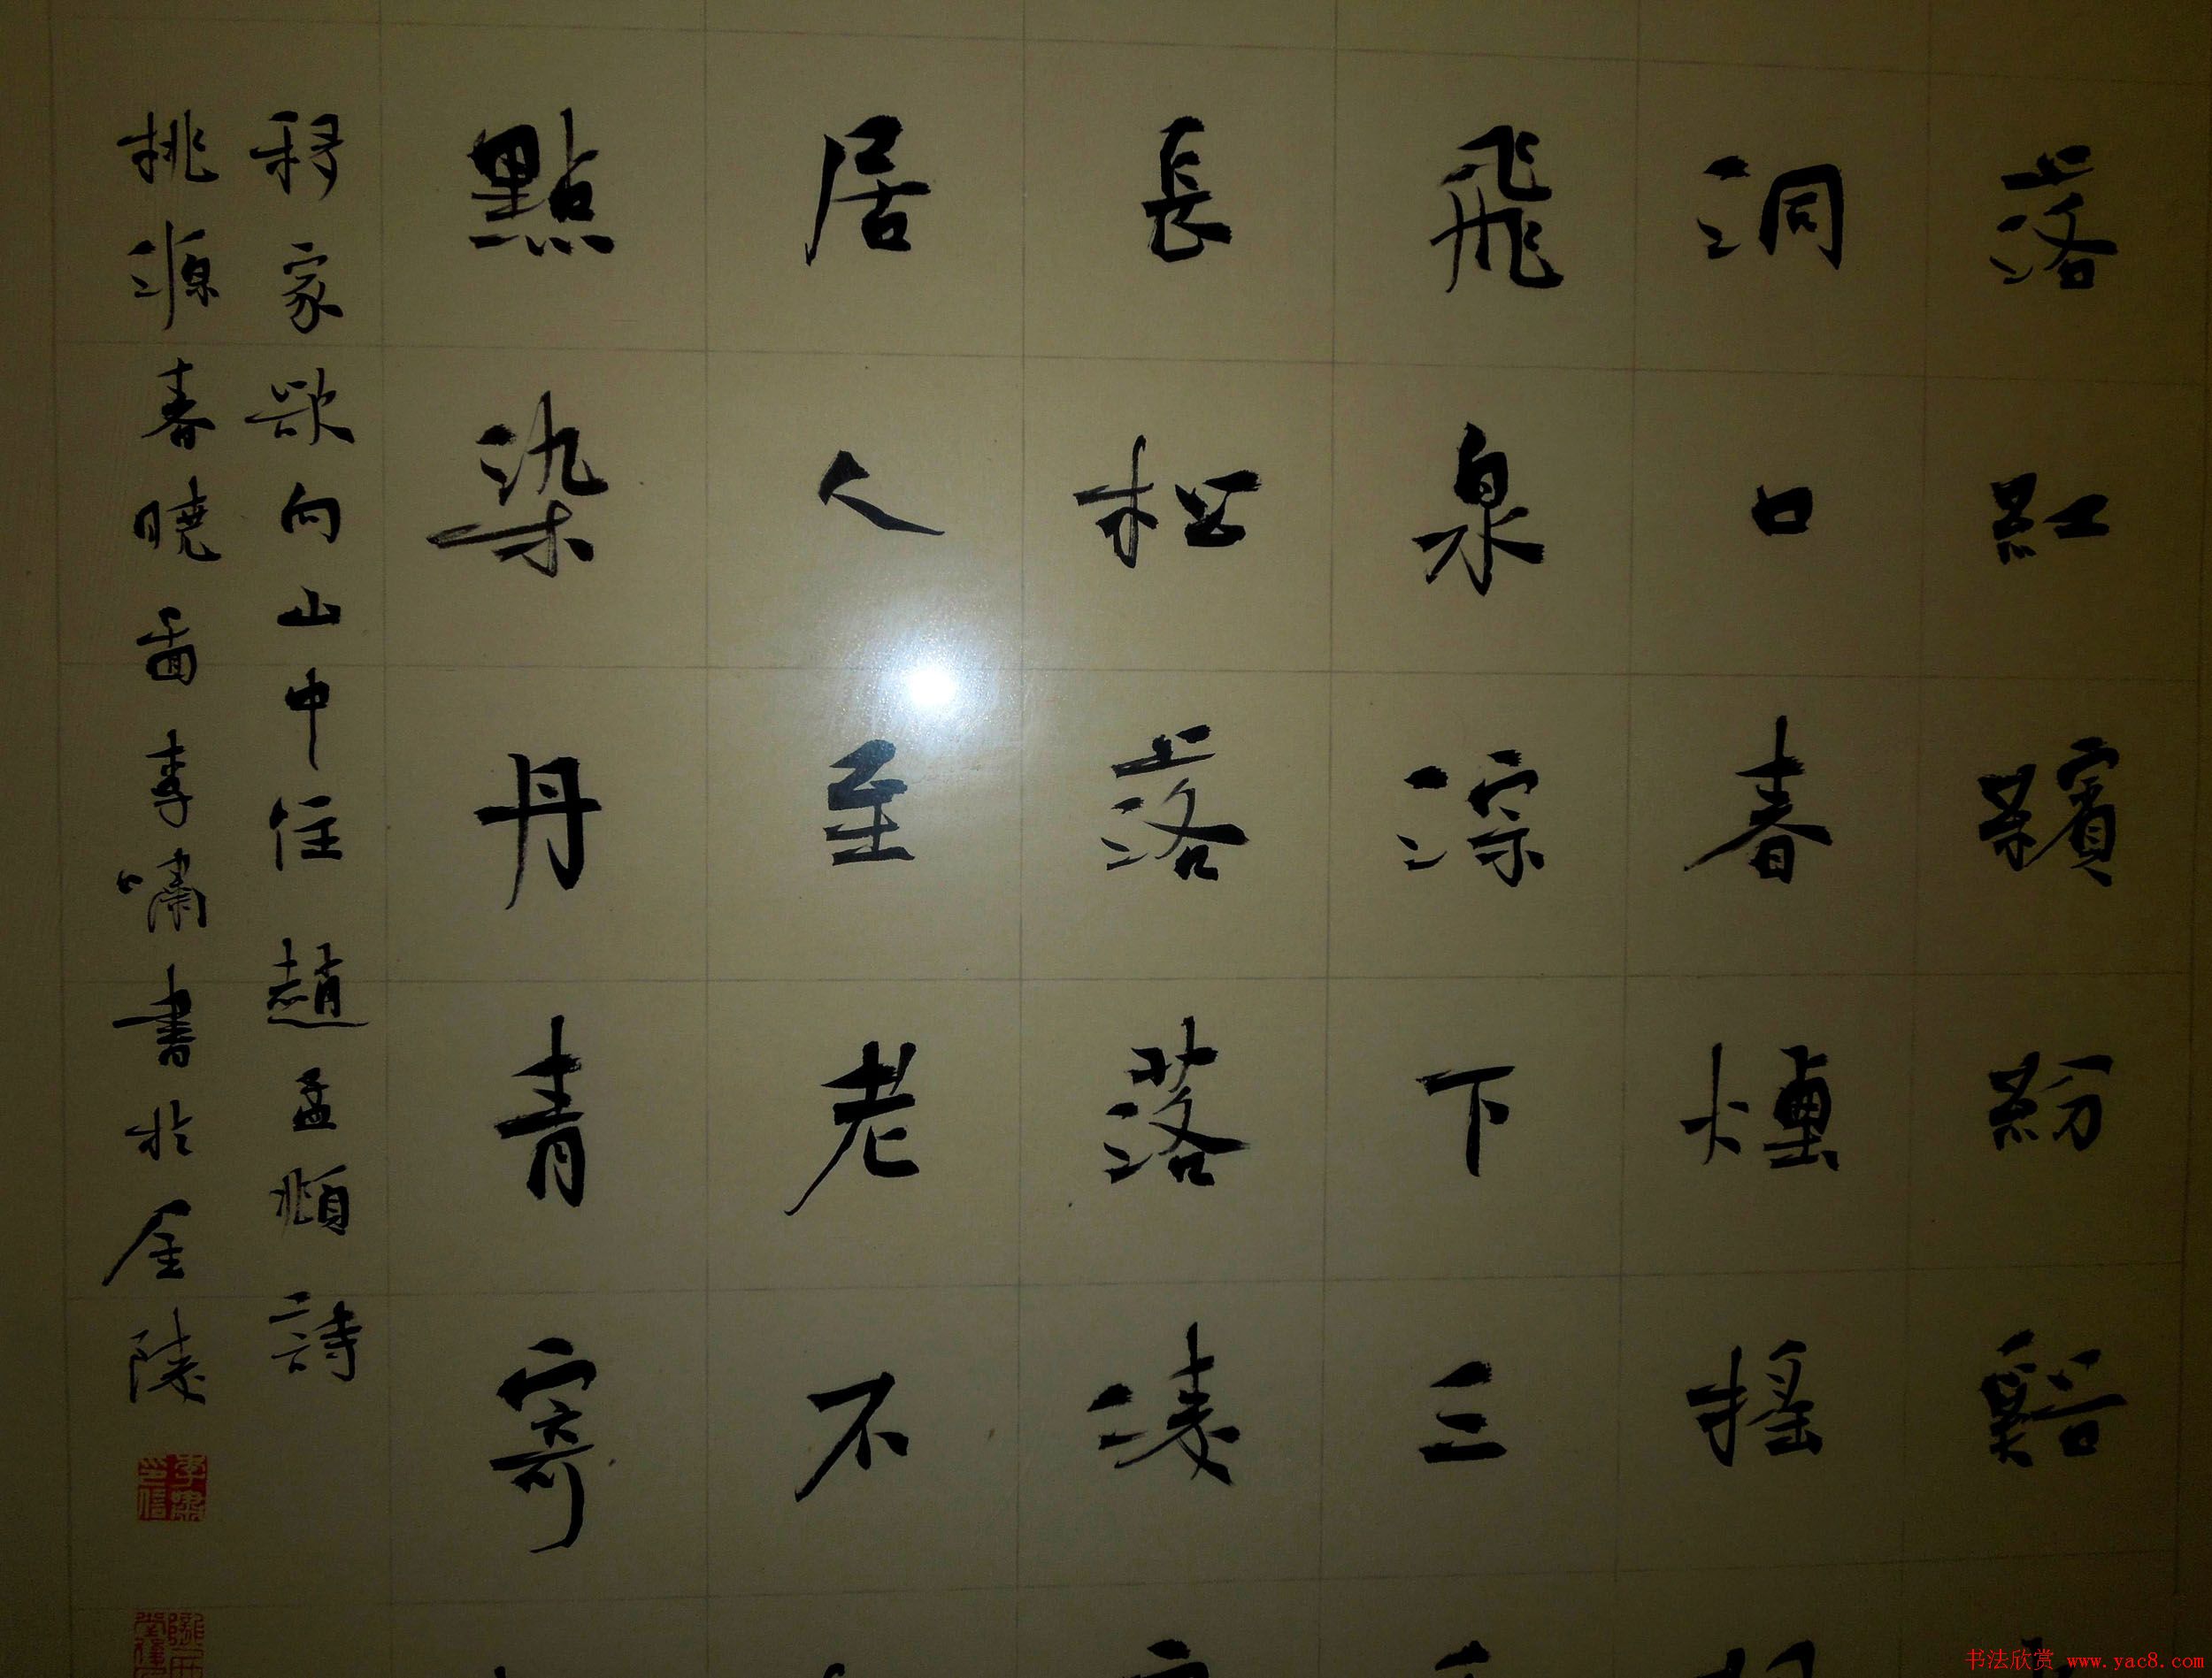 落紅繽紛谿
洞口春煙搖
飛泉淙下三
長松落落凌
居人至老不
點染丹青寄
移家欲向山中住趙孟頫詩
桃源春曉啚李嘯書於金陵
李嘯之信
书法欣赏 www.yac8.com